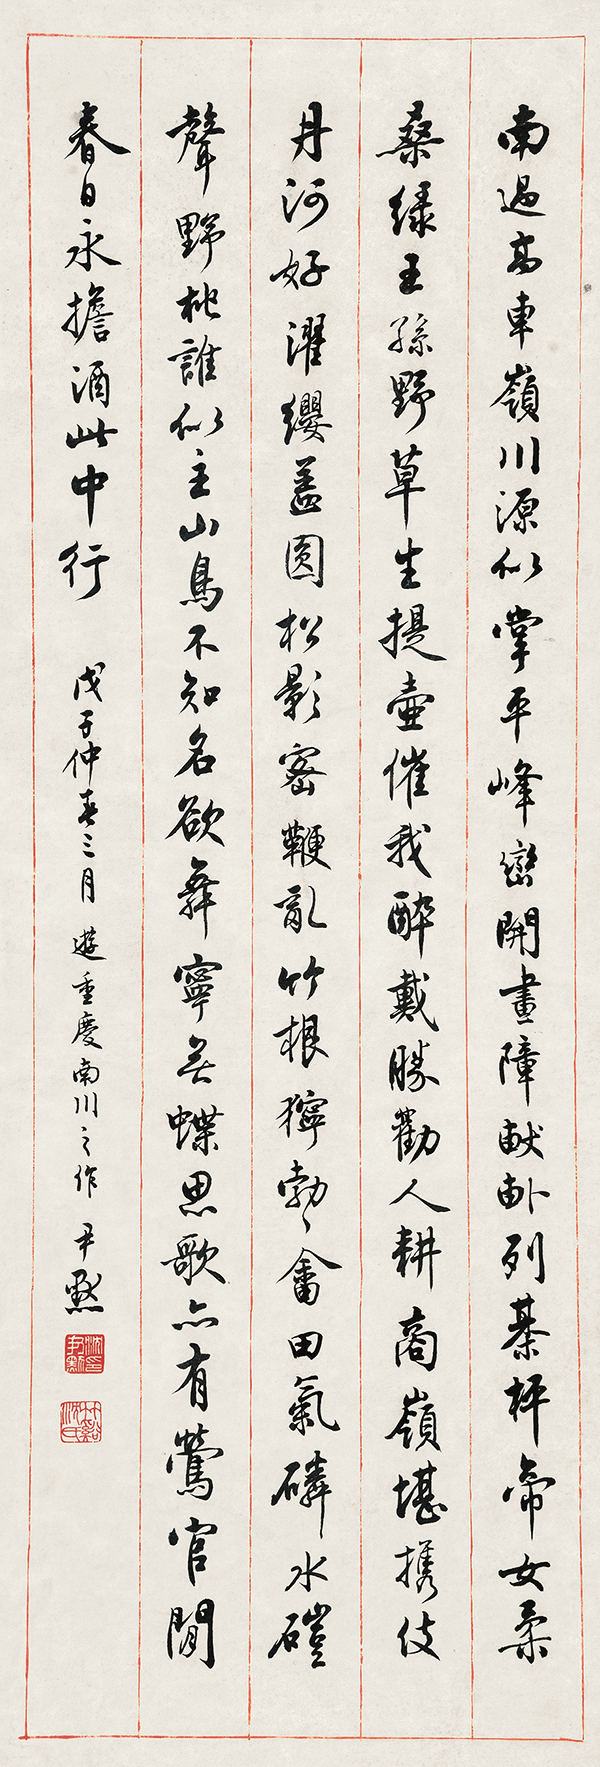 南過高車嶺川源似掌平峰巒開畫障畎畝列棊枰帝女柔
桑綠王孫野草生提壺催我醉戴勝勸人耕商嶺堪攜伎
丹河好濯纓蓋圓松影密鞭亂竹根獰勃〻畬田氣磷水磑
聲野桃誰似主山鳥不知名欲舞寧無蝶思歌亦有鶯官閒
春日永擔酒此中行
戊子仲春三月遊重慶南川之作 尹默
沈尹默印
竹谿沈氏